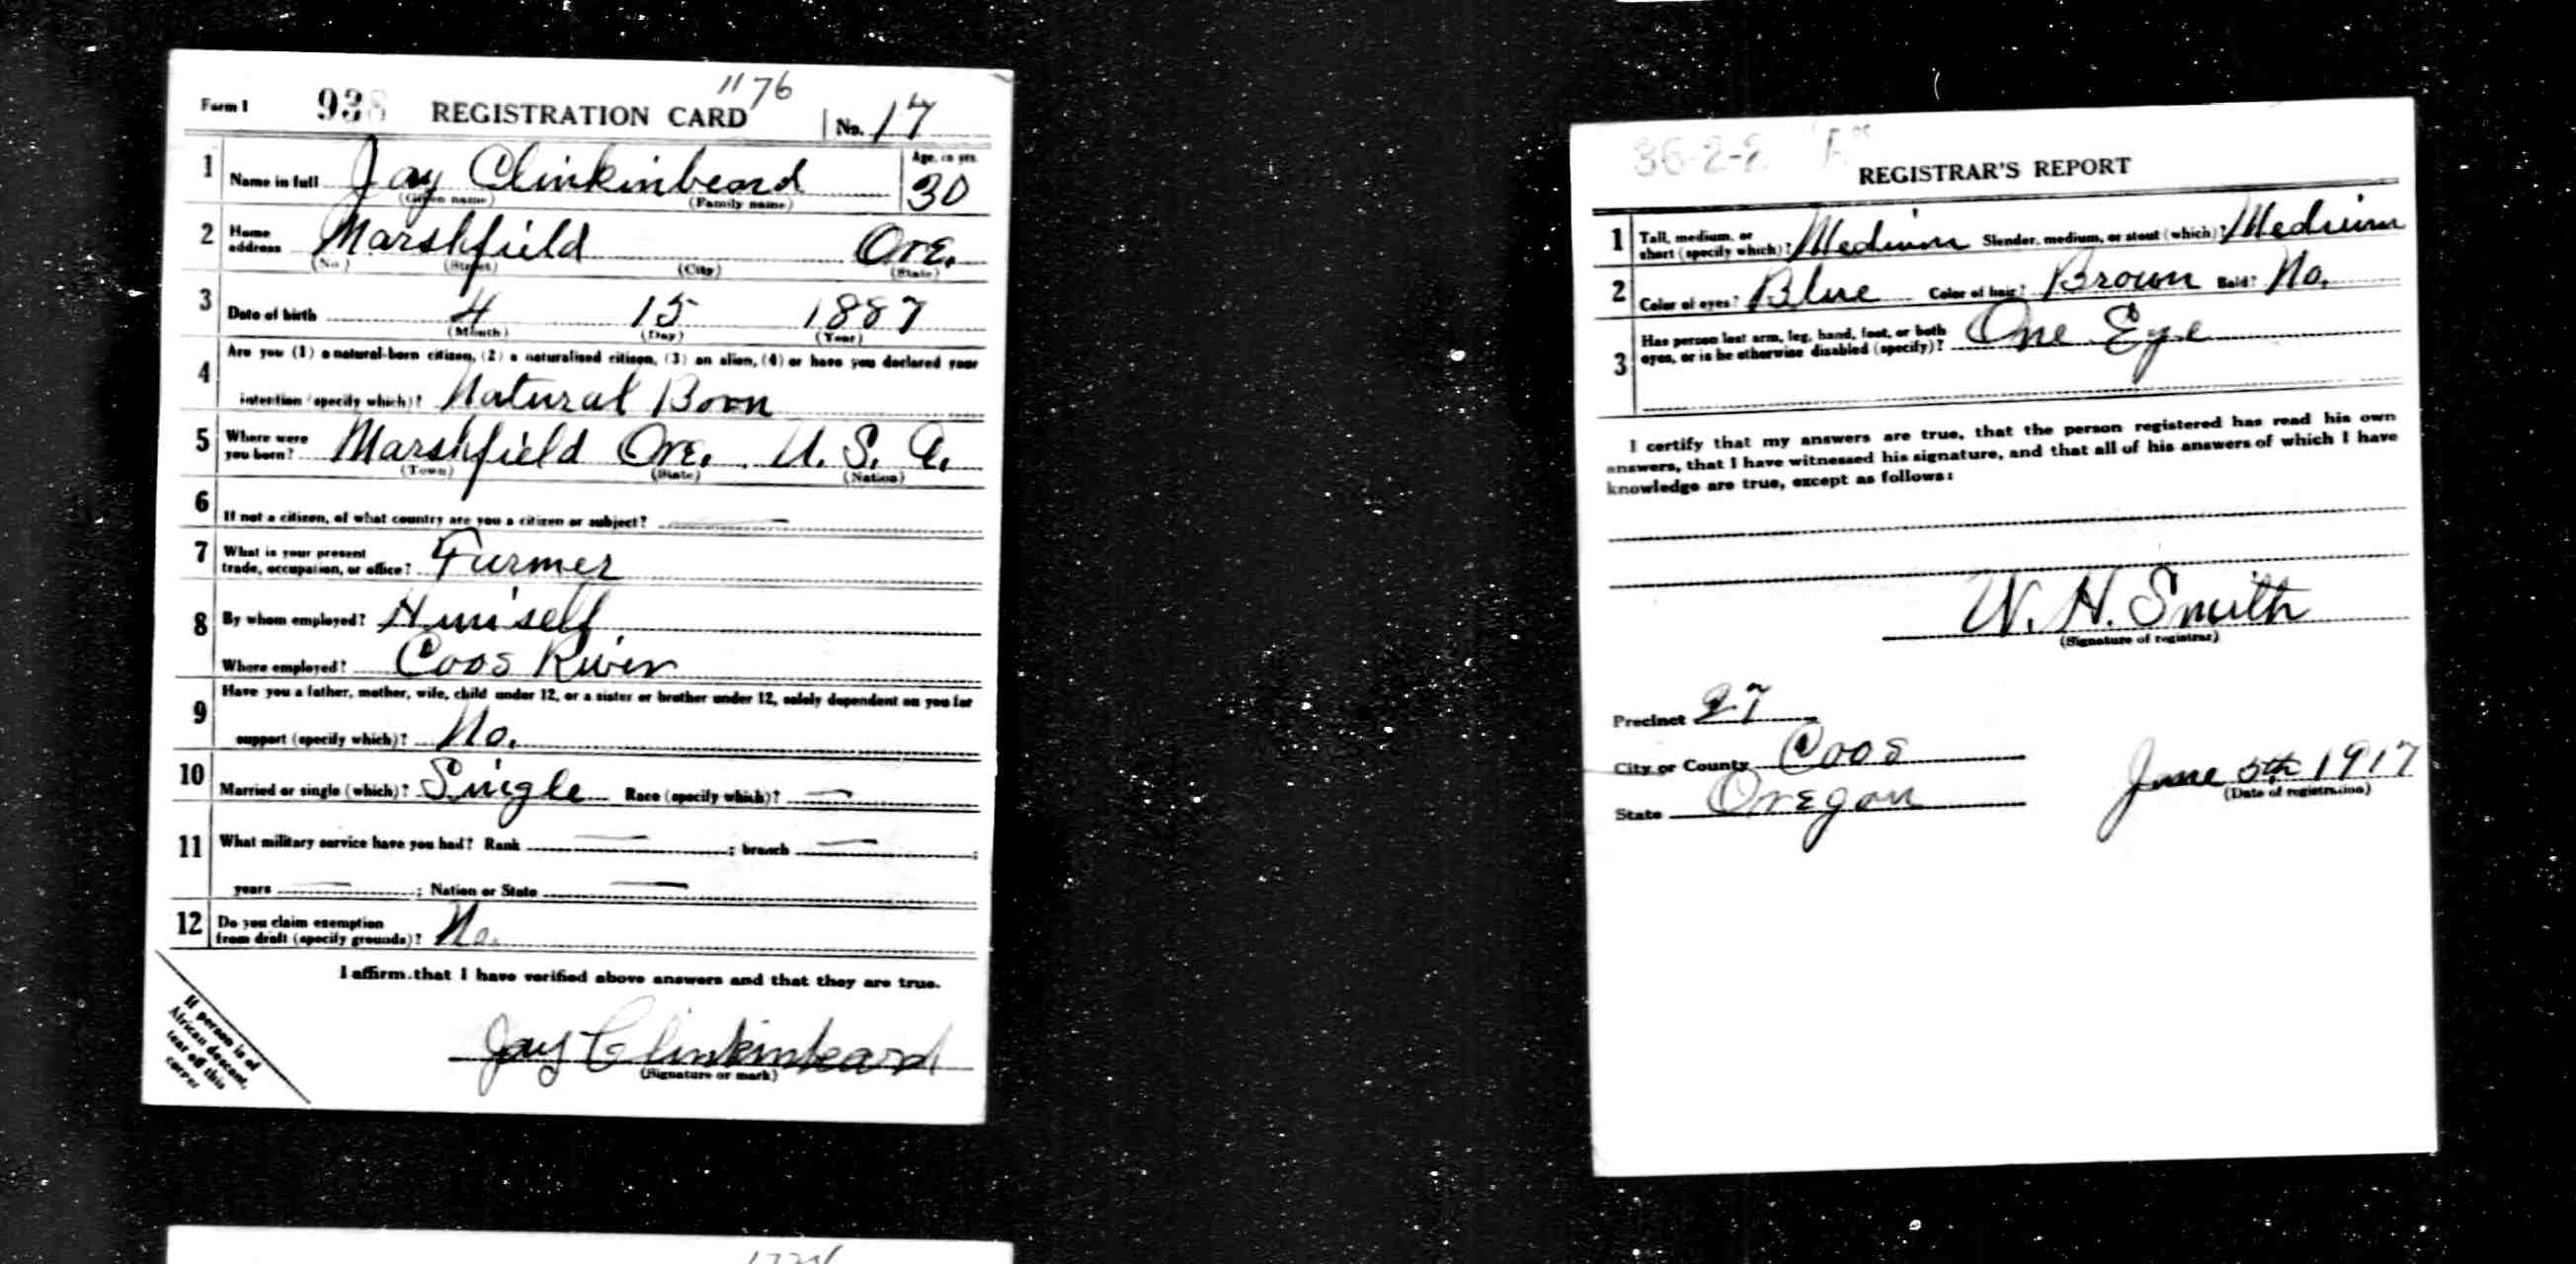 1176
Form 1 938 REGISTRATION CARD No. 17
1 Name in full Jay Clinkinbeard Age, in yrs. 30
(Given name) (Family name)
2 Home address Marshfield Ore.
(No.) (Street) (City) (State)
3 Date of birth 4 15 1887
(Month) (Day) (Year)
4 Are you (1) a natural-born citizen, (2) a naturalized citizen, (3) an alien, (4) or have you declared your
intention (specify which)? Natural Born
5 Where were you born? Marshfield Ore. U. S. A.
(Town) (State) (Nation)
6 If not a citizen, of what country are you a citizen or subject? —
7 What is your present trade, occupation, or office? Farmer
8 By whom employed? Himself
Where employed? Coos River
9 Have you a father, mother, wife, child under 12, or a sister or brother under 12, solely dependent on you for
support (specify which)? No.
10 Married or single (which)? Single Race (specify which)? —
11 What military service have you had? Rank — ; branch — ;
years — ; Nation or State —
12 Do you claim exemption from draft (specify grounds)? No.
I affirm that I have verified above answers and that they are true.
Jay Clinkinbeard
(Signature or mark)
If person is of
African descent,
tear off this
corner
36-2-2 "A"
REGISTRAR'S REPORT
1 Tall, medium, or short (specify which)? Medium Slender, medium, or stout (which)? Medium
2 Color of eyes? Blue Color of hair? Brown Bald? No.
3 Has person lost arm, leg, hand, foot, or both
eyes, or is he otherwise disabled (specify)? One Eye
I certify that my answers are true, that the person registered has read his own
answers, that I have witnessed his signature, and that all of his answers of which I have
knowledge are true, except as follows:
W. H. Smith
(Signature of registrar)
Precinct 27
City or County Coos
State Oregon
June 5th 1917
(Date of registration)